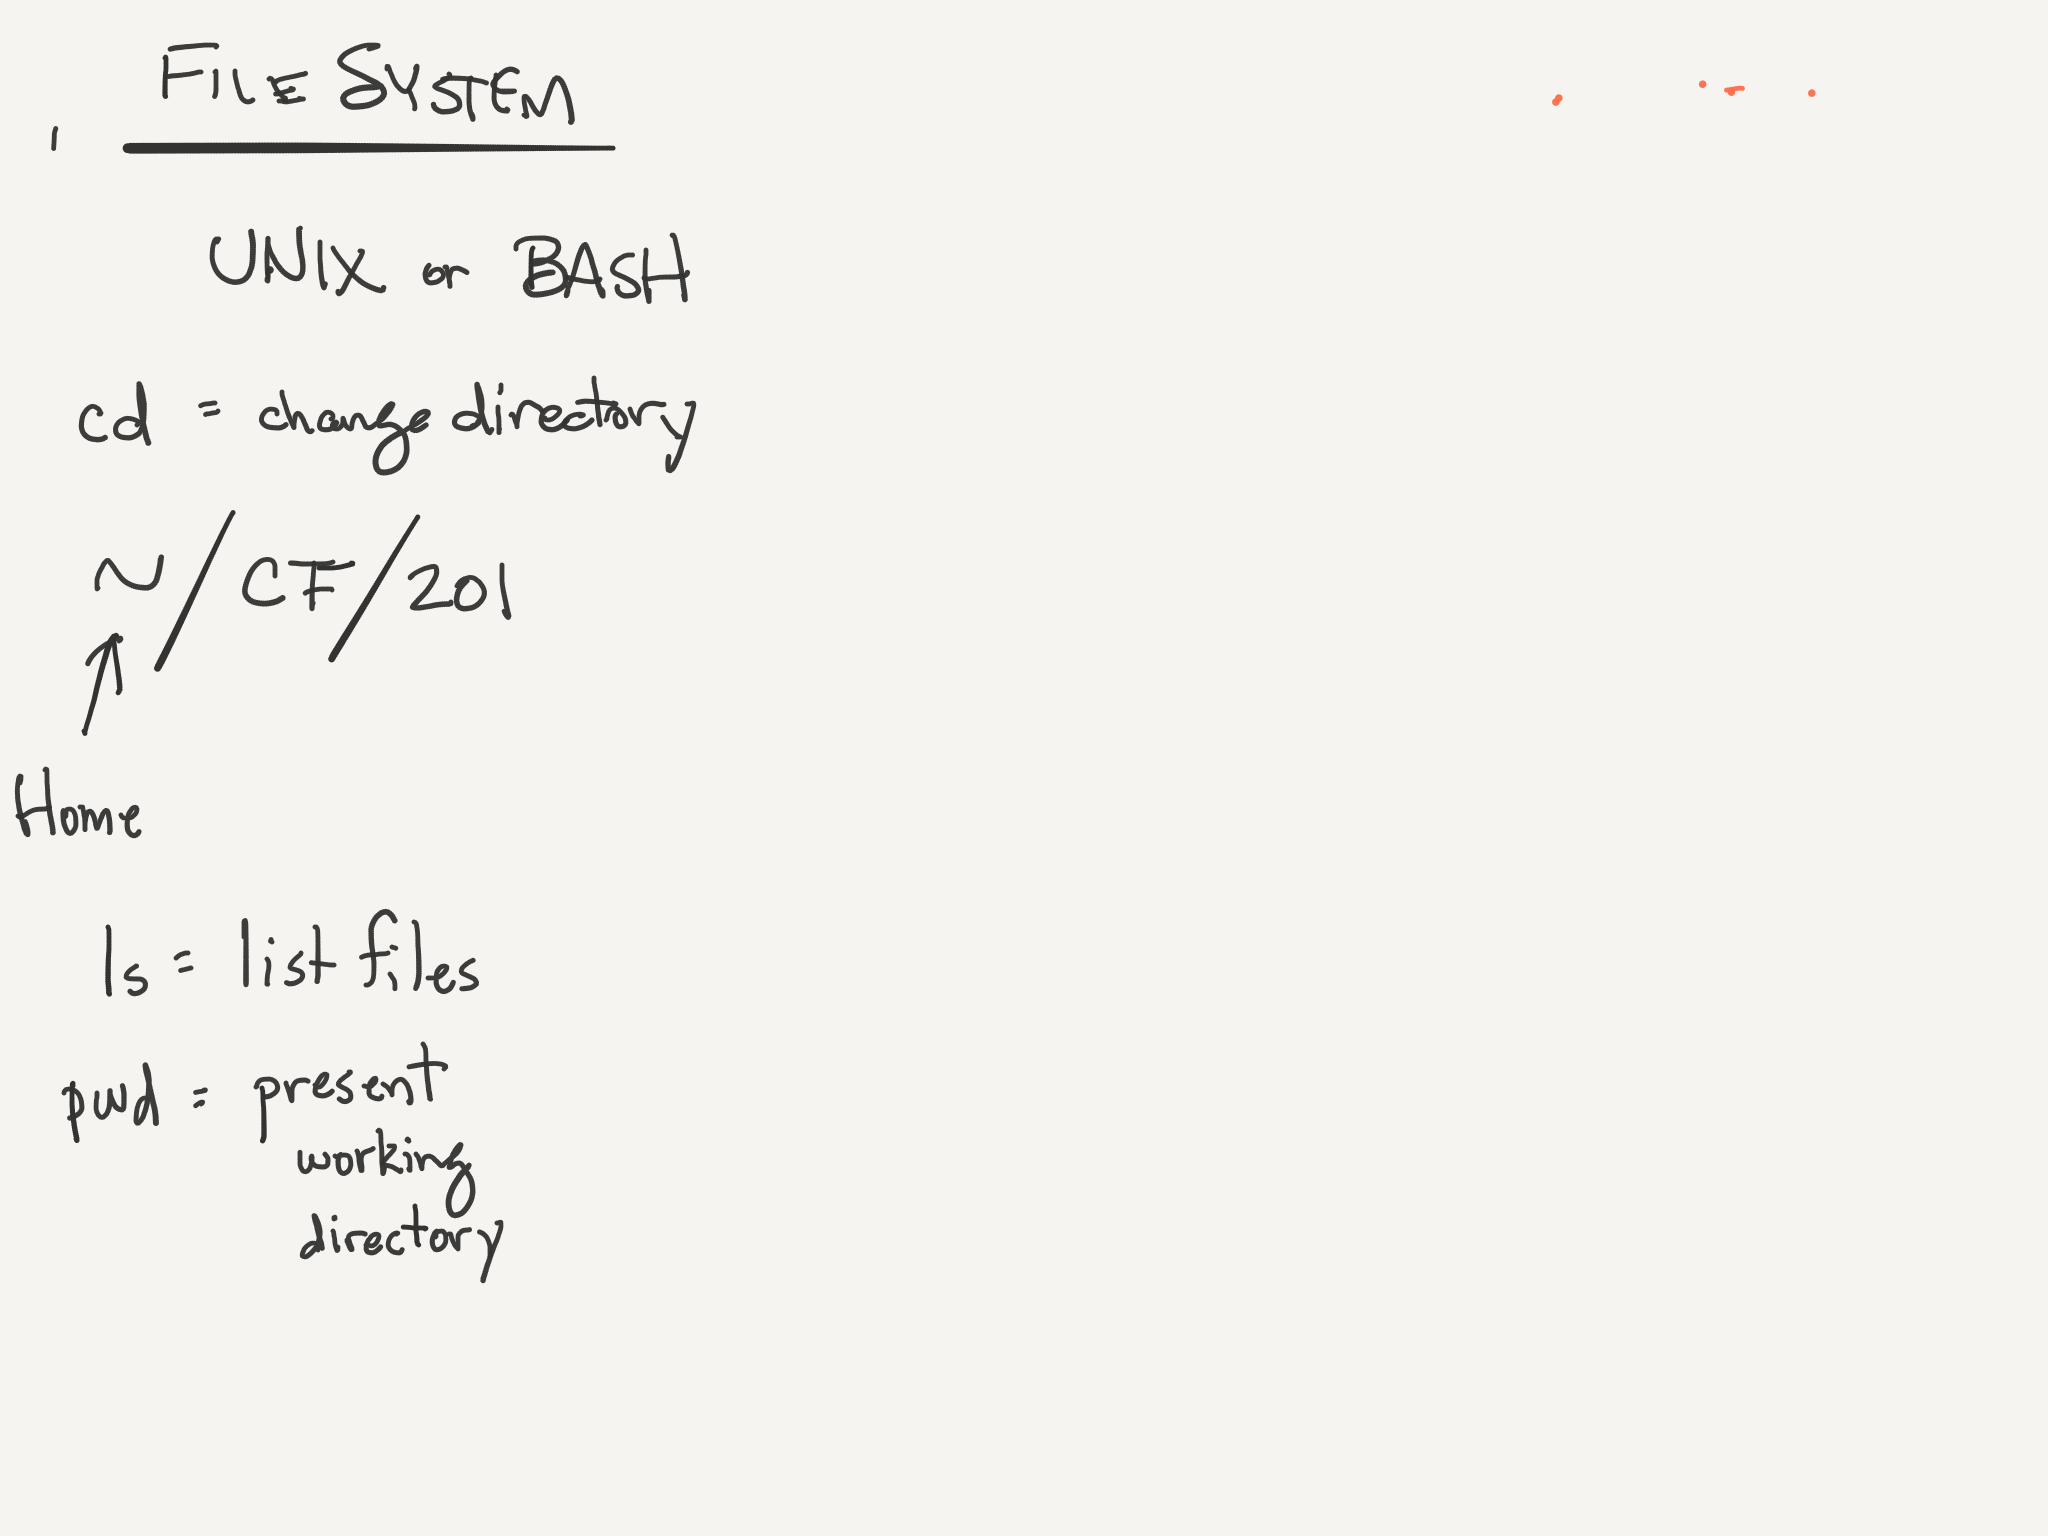 FILE SYSTEM
UNIX or BASH
cd = change directory
~/CF/201
Home
ls = list files
pwd = present
working
directory